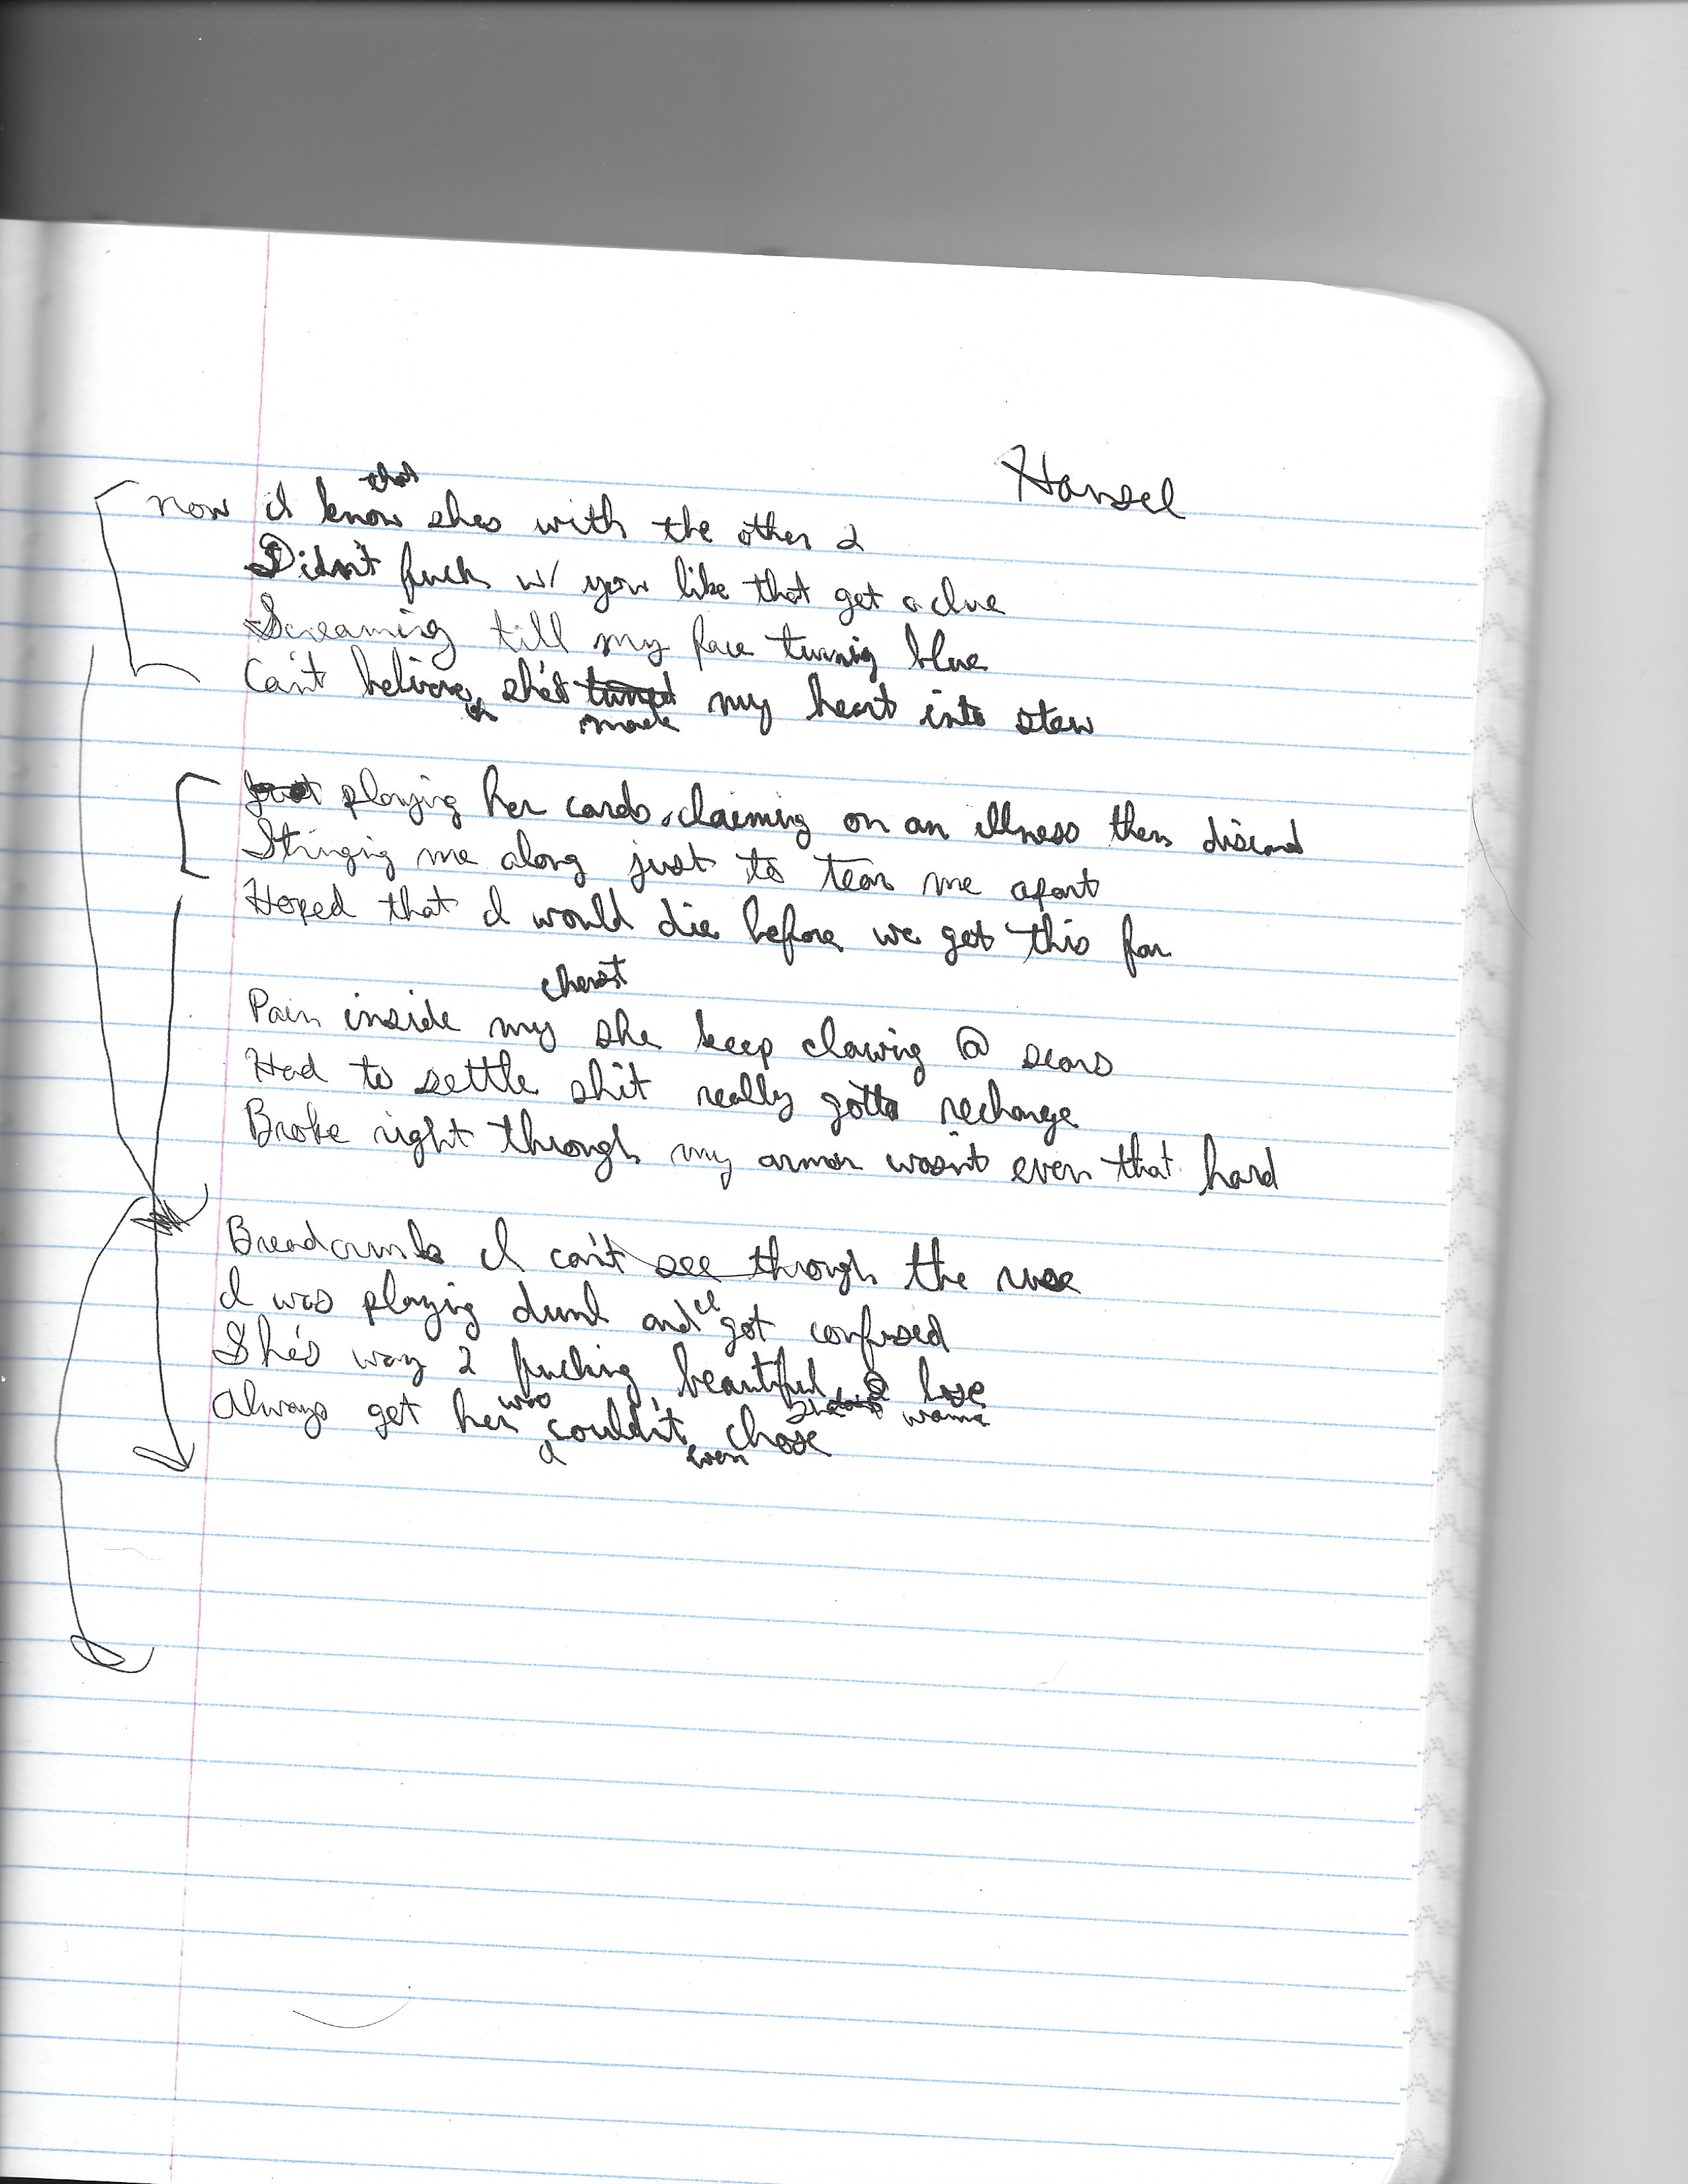 Hansel
now I know that shes with the other 2
Didn't fuck w/ you like that get a clue
Screaming till my face turnig blue
Can't belive she's made my heart into stew
playing her cards, claiming on an illness then discard
Stringig me along just to tear me apart
Hoped that I would die before we get this far
Pain inside my chest she keep clawing @ scars
Had to settle shit really gotta recharge
Broke right through my armor wasn't even that hard
Breadcrumbs I can't see through the ruse
I was playing dumb and I got confused
She's way 2 fucking beautiful 2 lose
wanna
Always get her way I couldn't even chose